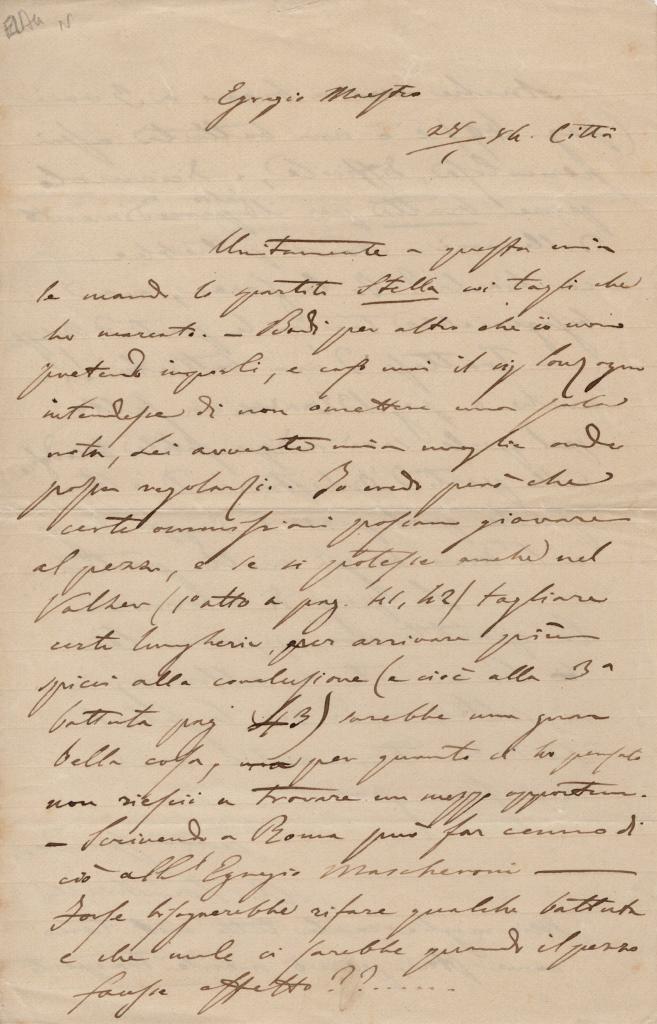 Egregio Maestro
28/1 86. Città
Unitamente a questa mia
le mando lo spartito Stella coi tagli che
ho marcato. — Badi per altro che io non
pretendo imporli, e caso mai il sig Sonzogno
intendesse di non omettere una sola
nota, Lei avverta mia moglie onde
possa regolarsi. Io credo però che
certe ommissioni possano giovare
al pezzo, e se si potesse anche nel
Valzer (1º atto a pag. 41, 42) tagliare
certe lungherie, per arrivare più
spicci alla conclusione (e cioè alla 3ª
battuta pag 43) sarebbe una gran
bella cosa, ma per quanto ci ho pensato
non riescii a trovare un mezzo opportuno.
— Scrivendo a Roma può far cenno di
ciò all' Egregio Mascheroni —
Forse bisognerebbe rifare qualche battuta
e che male ci sarebbe quando il pezzo
facesse effetto??......